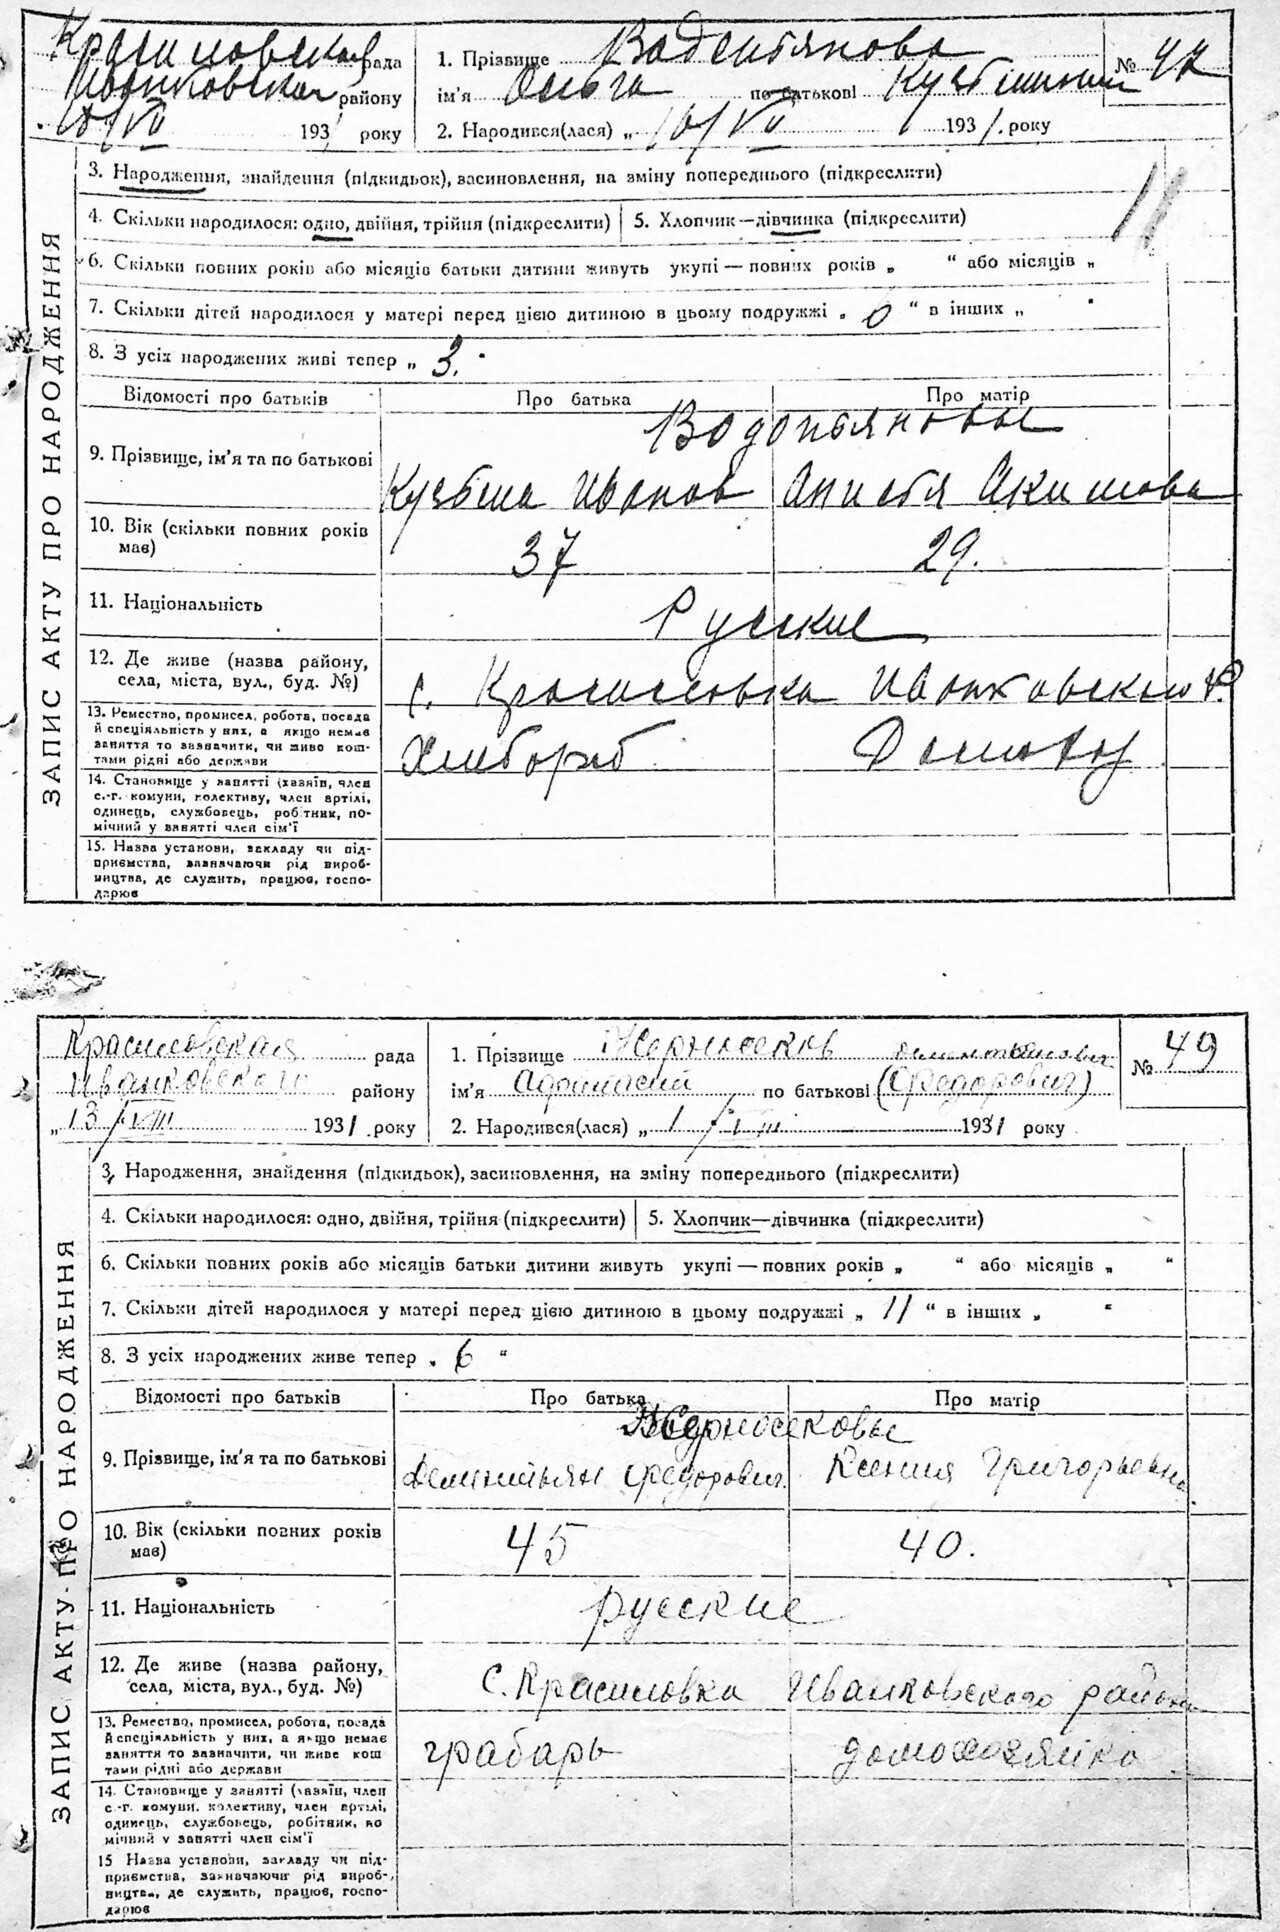 Красиловская рада
Иванковская району
16/VII 1931 року
1. Прізвище Вадепьянова
ім'я Ольга по батькові Кузьминична
2. Народився(лася) „ 16/VII 1931. року
№ 47
3. Народження, знайдення (підкидьок), засиновлення, на зміну попереднього (підкреслити)
4. Скільки народилося: одно, двійня, трійня (підкреслити) 5. Хлопчик—дівчинка (підкреслити)
6. Скільки повних років або місяців батьки дитини живуть укупі — повних років „ “ або місяців „
7. Скільки дітей народилося у матері перед цією дитиною в цьому подружжі „ 6 “ в інших „
8. З усіх народжених живі тепер „ 3.
ЗАПИС АКТУ ПРО НАРОДЖЕННЯ
Відомості про батьків Про батька Про матір
Водопьяновы
9. Прізвище, ім'я та по батькові Кузьма Иванов Анисья Акимова
10. Вік (скільки повних років має) 37 29.
11. Національність Русские
12. Де живе (назва району, села, міста, вул., буд. №) с. Красиловка Иванковского р.
13. Ремество, промисел, робота, посада
й спеціяльність у них, а якщо немає
заняття то зазначити, чи живе кош-
тами рідні або держави
Хлебороб Домохоз
14. Становище у занятті (хазяїн, член
с.-г. комуни, колективу, член артілі,
одинець, службовець, робітник, по-
мічний у занятті член сім'ї
15. Назва установи, закладу чи під-
приємства, зазначаючи рід вироб-
ництва, де служить, працює, госпо-
дарює
Красиловская рада
Иванковского району
„13/VIII 1931 року
1. Прізвище Жерносеков Дементьянович
ім'я Афанасий по батькові (Федорович)
2. Народився(лася) „ 1/VIII 1931 року
№ 49
3. Народження, знайдення (підкидьок), засиновлення, на зміну попереднього (підкреслити)
4. Скільки народилося: одно, двійня, трійня (підкреслити) 5. Хлопчик—дівчинка (підкреслити)
6. Скільки повних років або місяців батьки дитини живуть укупі — повних років „ “ або місяців „ “
7. Скільки дітей народилося у матері перед цією дитиною в цьому подружжі „ 11 “ в інших „ “
8. З усіх народжених живе тепер „ 6 “
ЗАПИС АКТУ ПРО НАРОДЖЕННЯ
Відомості про батьків Про батька Про матір
Жерносековы
9. Прізвище, ім'я та по батькові Федорович. Ксения Григорьевна
10. Вік (скільки повних років має) 45 40.
11. Національність русские
12. Де живе (назва району, села, міста, вул., буд. №) С. Красиловка Иванковского района
13. Ремество, промисел, робота, посада
й спеціяльність у них, а якщо немає
заняття то зазначити, чи живе кош
тами рідні або держави
грабарь домохозяйка
14. Становище у занятті (хазяїн, член
с.-г. комуни, колективу, член артілі,
одинець, службовець, робітник, по
мічний у занятті член сім'ї
15 Назва установи, закладу чи під-
приємства, зазначаючи рід вироб-
ництва, де служить, працює, госпо-
дарює